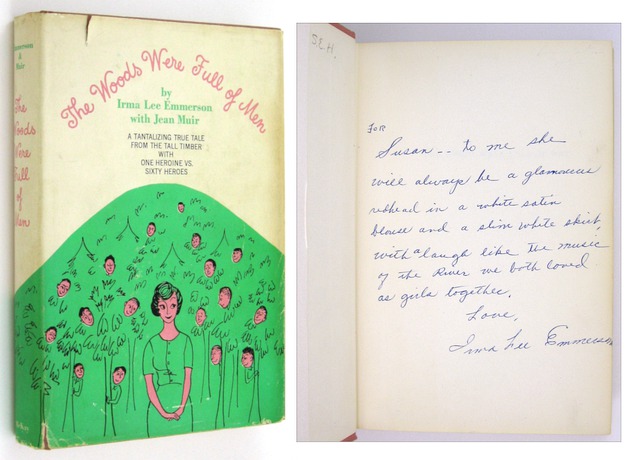 Emmerson
&
Muir
The
Woods
Were
Full
of
Men
The Woods Were Full of Men
by
Irma Lee Emmerson
with Jean Muir
A TANTALIZING TRUE TALE
FROM THE TALL TIMBER
WITH
ONE HEROINE VS.
SIXTY HEROES
S.E.H.
FOR
Susan -- to me she
will always be a glamorous
redhead in a white satin
blouse and a slim white skirt,
with a laugh like the music
of the River we both loved
as girls together.
Love,
Irma Lee Emmerson